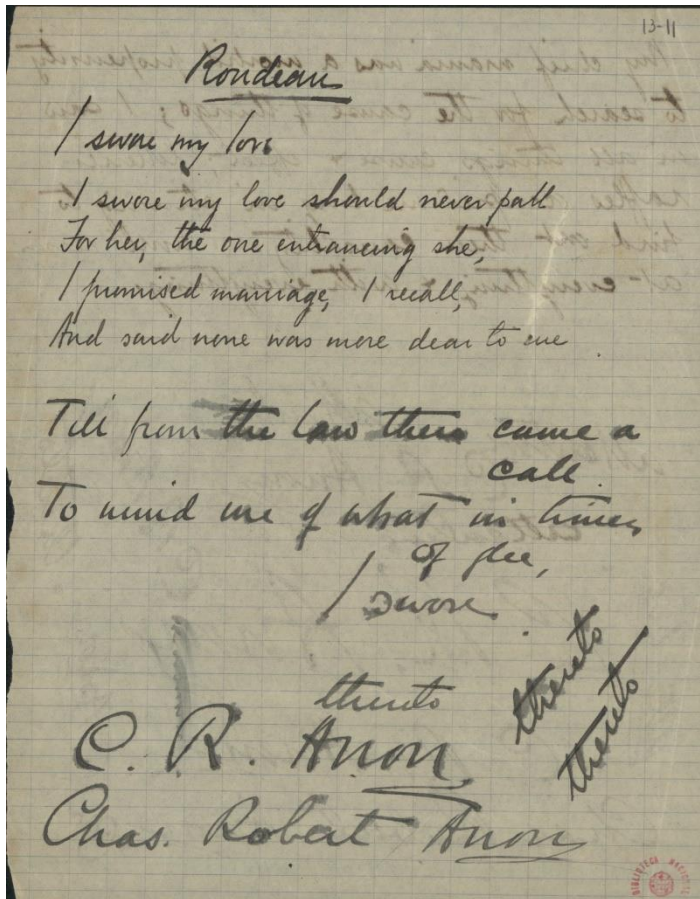 13-11
Rondeau
I swore my love
I swore my love should never pall
For her, the one entrancing she,
I promised marriage, I recall,
And said none was more dear to me.
Till from the law there came a
call
To mind me of what in times
of glee,
I swore.
thereto
thereto
thereto
C. R. Anon
Chas. Robert Anon
BIBLIOTECA NACIONAL